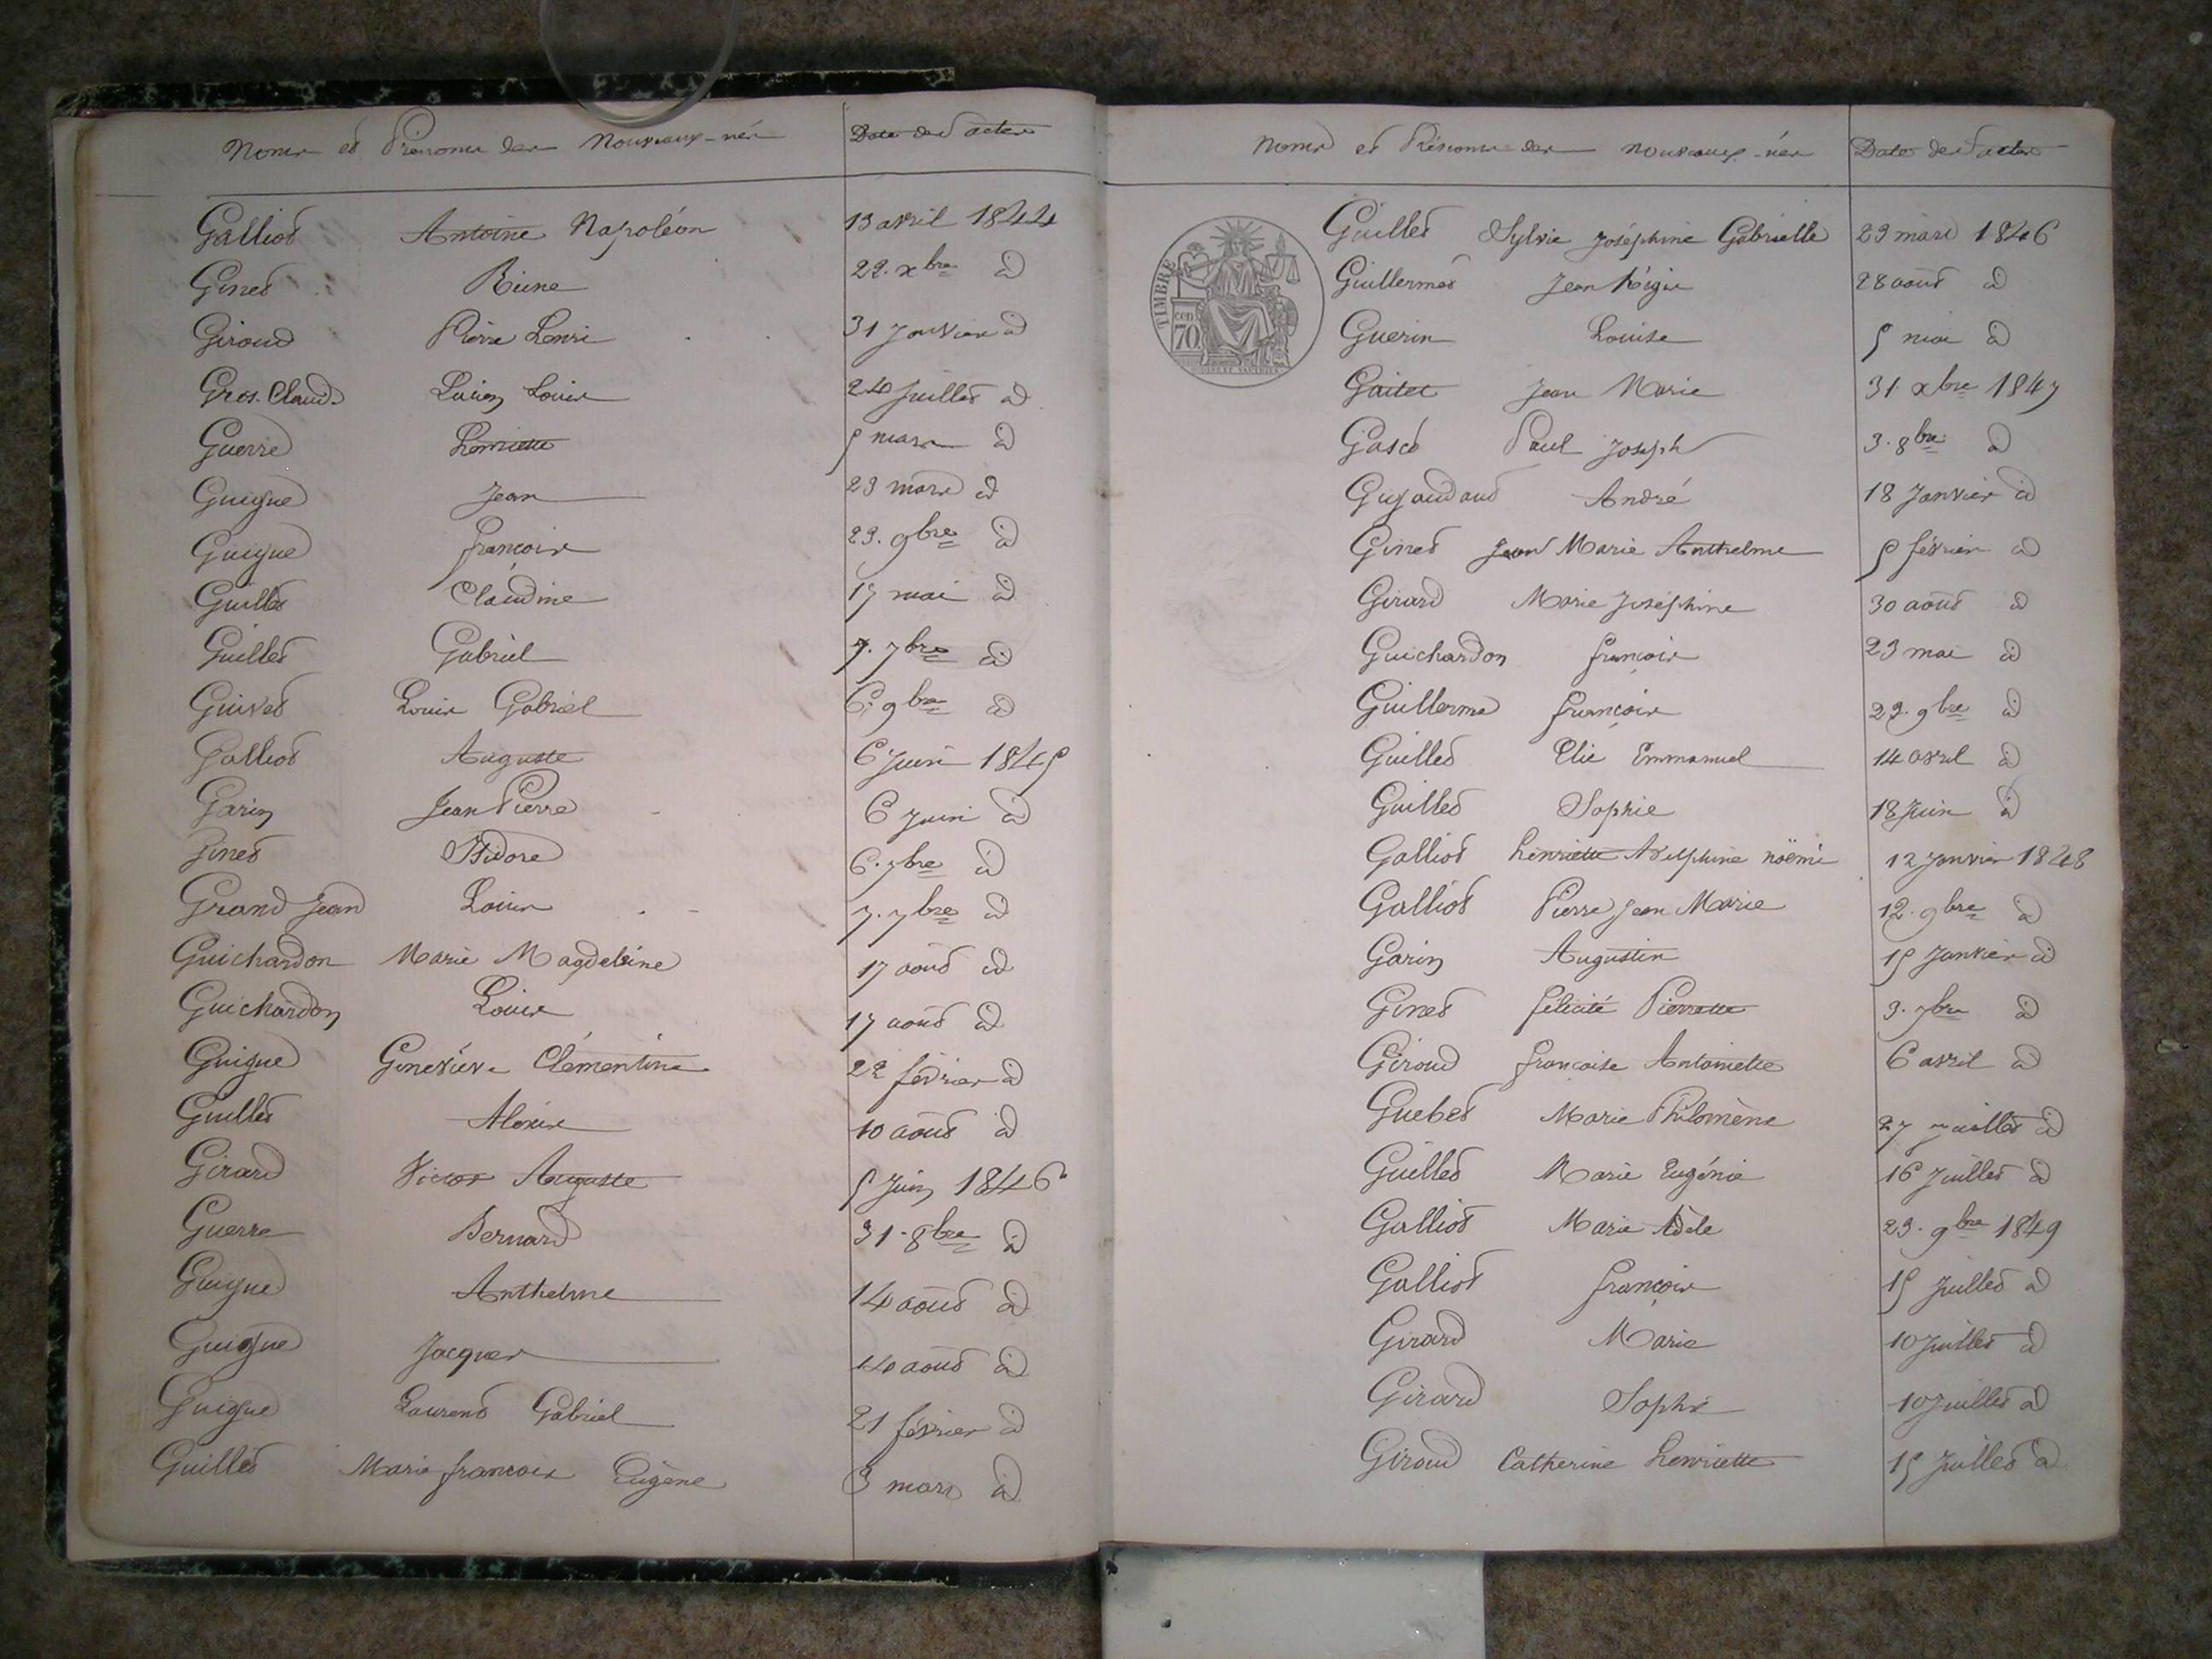 Noms et Prénoms des Nouveaux-nés Date des actes
Galliot Antoine Napoléon 13 avril 1844
Ginet Reine 22. xbre id
Giroud Pierre Henri 31 Janvier id
Gros-Claud Lucien Louis 24 Juillet id
Guerre Henriette 5 mars id
Guigue Jean 23 mars id
Guigue françois 23. 9bre id
Guillet Claudine 17 mai id
Guillet Gabriel 7. 7bre id
Guivet Louis Gabriel 6. 9bre id
Galliot Auguste 6 Juin 1845
Garin Jean Pierre 6 Juin id
Ginet Isidore 6. 7bre id
Grand Jean Louis 7. 7bre id
Guichardon Marie Magdeleine 17 août id
Guichardon Louis 17 août id
Guigue Geneviève Clémentine 22 février id
Guillet Alexis 10 août id
Girard Victor Auguste 5 Juin 1846
Guerre Bernard 31. 8bre id
Guigue Anthelme 14 août id
Guigue Jacques 14 août id
Guigue Laurent Gabriel 21 février id
Guillet Marie françois Eugène 3 mars id
Noms et Prénoms des nouveaux-nés Date des actes
TIMBRE
70 cen
Guillet Sylvie Joséphine Gabrielle 29 mars 1846
Guillermet Jean Régis 28 août id
Guerin Louise 5 mai id
Gaitet Jean Marie 31 xbre 1847
Gascé Paul Joseph 3. 8bre id
André 18 Janvier id
Ginet Jean Marie Anthelme 5 février id
Girard Marie Joséphine 30 août id
Guichardon françois 23 mai id
Guillerme françois 22. 9bre id
Guillet Elie Emmanuel 14 avril id
Guillet Sophie 18 Juin id
Galliot Henriette Adelphine noëmi 12 Janvier 1848
Galliot Pierre Jean Marie 12. 9bre id
Garin Augustin 15 Janvier id
Ginet félicité Pierrette 3. 7bre id
Giroud françoise Antoinette 6 avril id
Guebet Marie Philomène 27 Juillet id
Guillet Marie Eugénie 16 Juillet id
Galliot Marie Adèle 23. 9bre 1849
Galliot françois 15 Juillet id
Girard Marie 10 Juillet id
Girard Sophie 10 Juillet id
Giroud Catherine Henriette 15 Juillet id